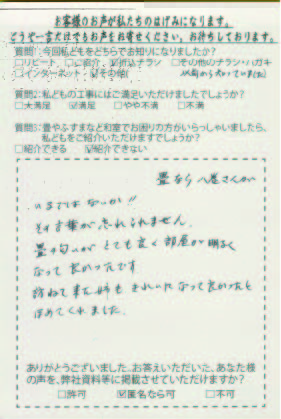 お客様のお声が私たちのはげみになります。
どうぞ一言だけでもお声をお寄せください。お待ちしております。
質問1:今回私どもをどちらでお知りになりましたか?
□リピート □ご紹介 ☑折込チラシ □その他のチラシ・ハガキ
□インターネット ☑その他( 以前から知っていました)
質問2:私どもの工事にはご満足いただけましたでしょうか?
□大満足 ☑満足 □やや不満 □不満
質問3:畳やふすまなど和室でお困りの方がいらっしゃいましたら、
私どもをご紹介いただけますでしょうか?
□紹介できる ☑紹介できない
畳なら 八巻さんが
いるではないか!!
その言葉が忘れられません。
畳の匂いが とても良く 部屋が明るく
なって 良かったです
訪ねて来た姉も きれいになって良かったと
ほめてくれました。
ありがとうございました。お答えいただいた、あなた様
の声を、弊社資料等に掲載させていただけますか?
□許可 ☑匿名なら可 □不可